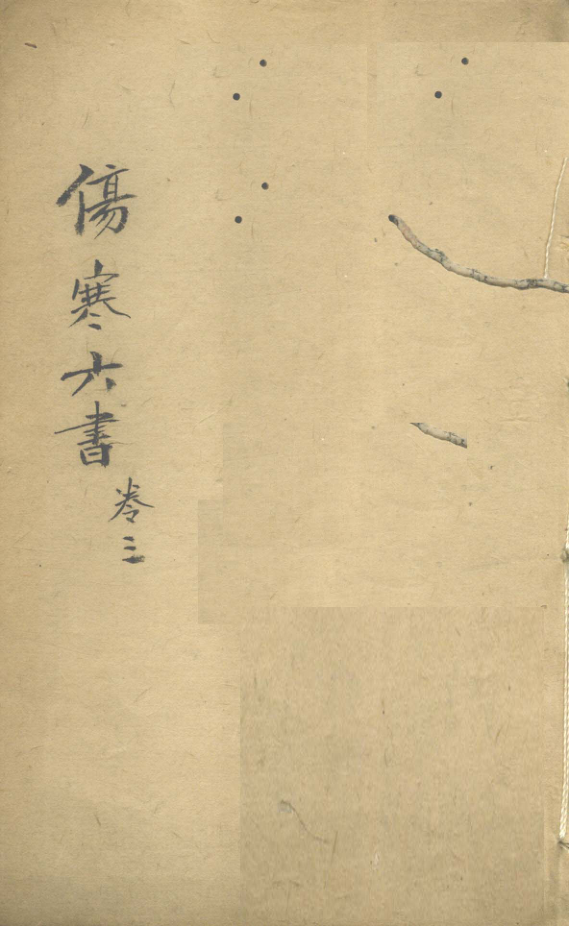 傷寒六書
卷三